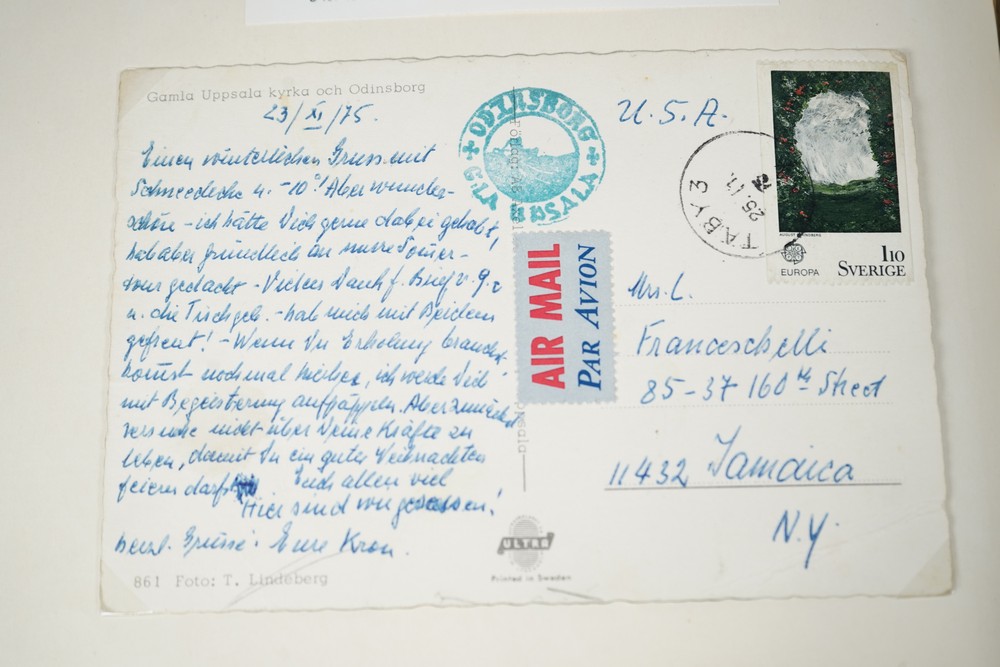 Gamla Uppsala kyrka och Odinsborg
23/XI/75.
Einen winterlichen Gruss mit
Schneedecke u. -10°! Aber wunder-
schön - ich hätte Dich gerne dabei gehabt,
hab aber gründlich an unsre Sommer-
tour gedacht - Vielen Dank f. Brief v. 9.
u. die Tischgeb. - hab mich mit Beidem
gefreut! - Wenn Du Erholung brauchst,
kommst nochmal hierher, ich werde Dich
mit Begeisterung aufpäppeln. Aber zunächst
versuche nicht über Deine Kräfte zu
leben, damit Du ein gutes Weihnachten
feiern darfst
Euch allen viel
Hier sind wir gesessen!
herzl. Grüsse. Eure Kron.
861 Foto: T. Lindeberg
ODINSBORG
GLA UPSALA
AIR MAIL
PAR AVION
ULTRA
Printed in Sweden
U.S.A.
TÄBY 3
25.11.
EUROPA
110
SVERIGE
Mrs. L.
Franceschelli
85-37 160th Street
11432 Jamaica
N.Y